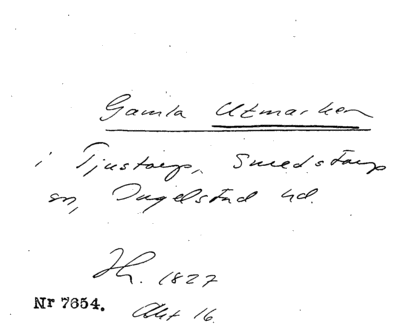 Gamla Utmarken
i Tjustorp, Smedstorp
sn, Ingelstad hd.
Jh. 1827
Nr 7654. Akt 16